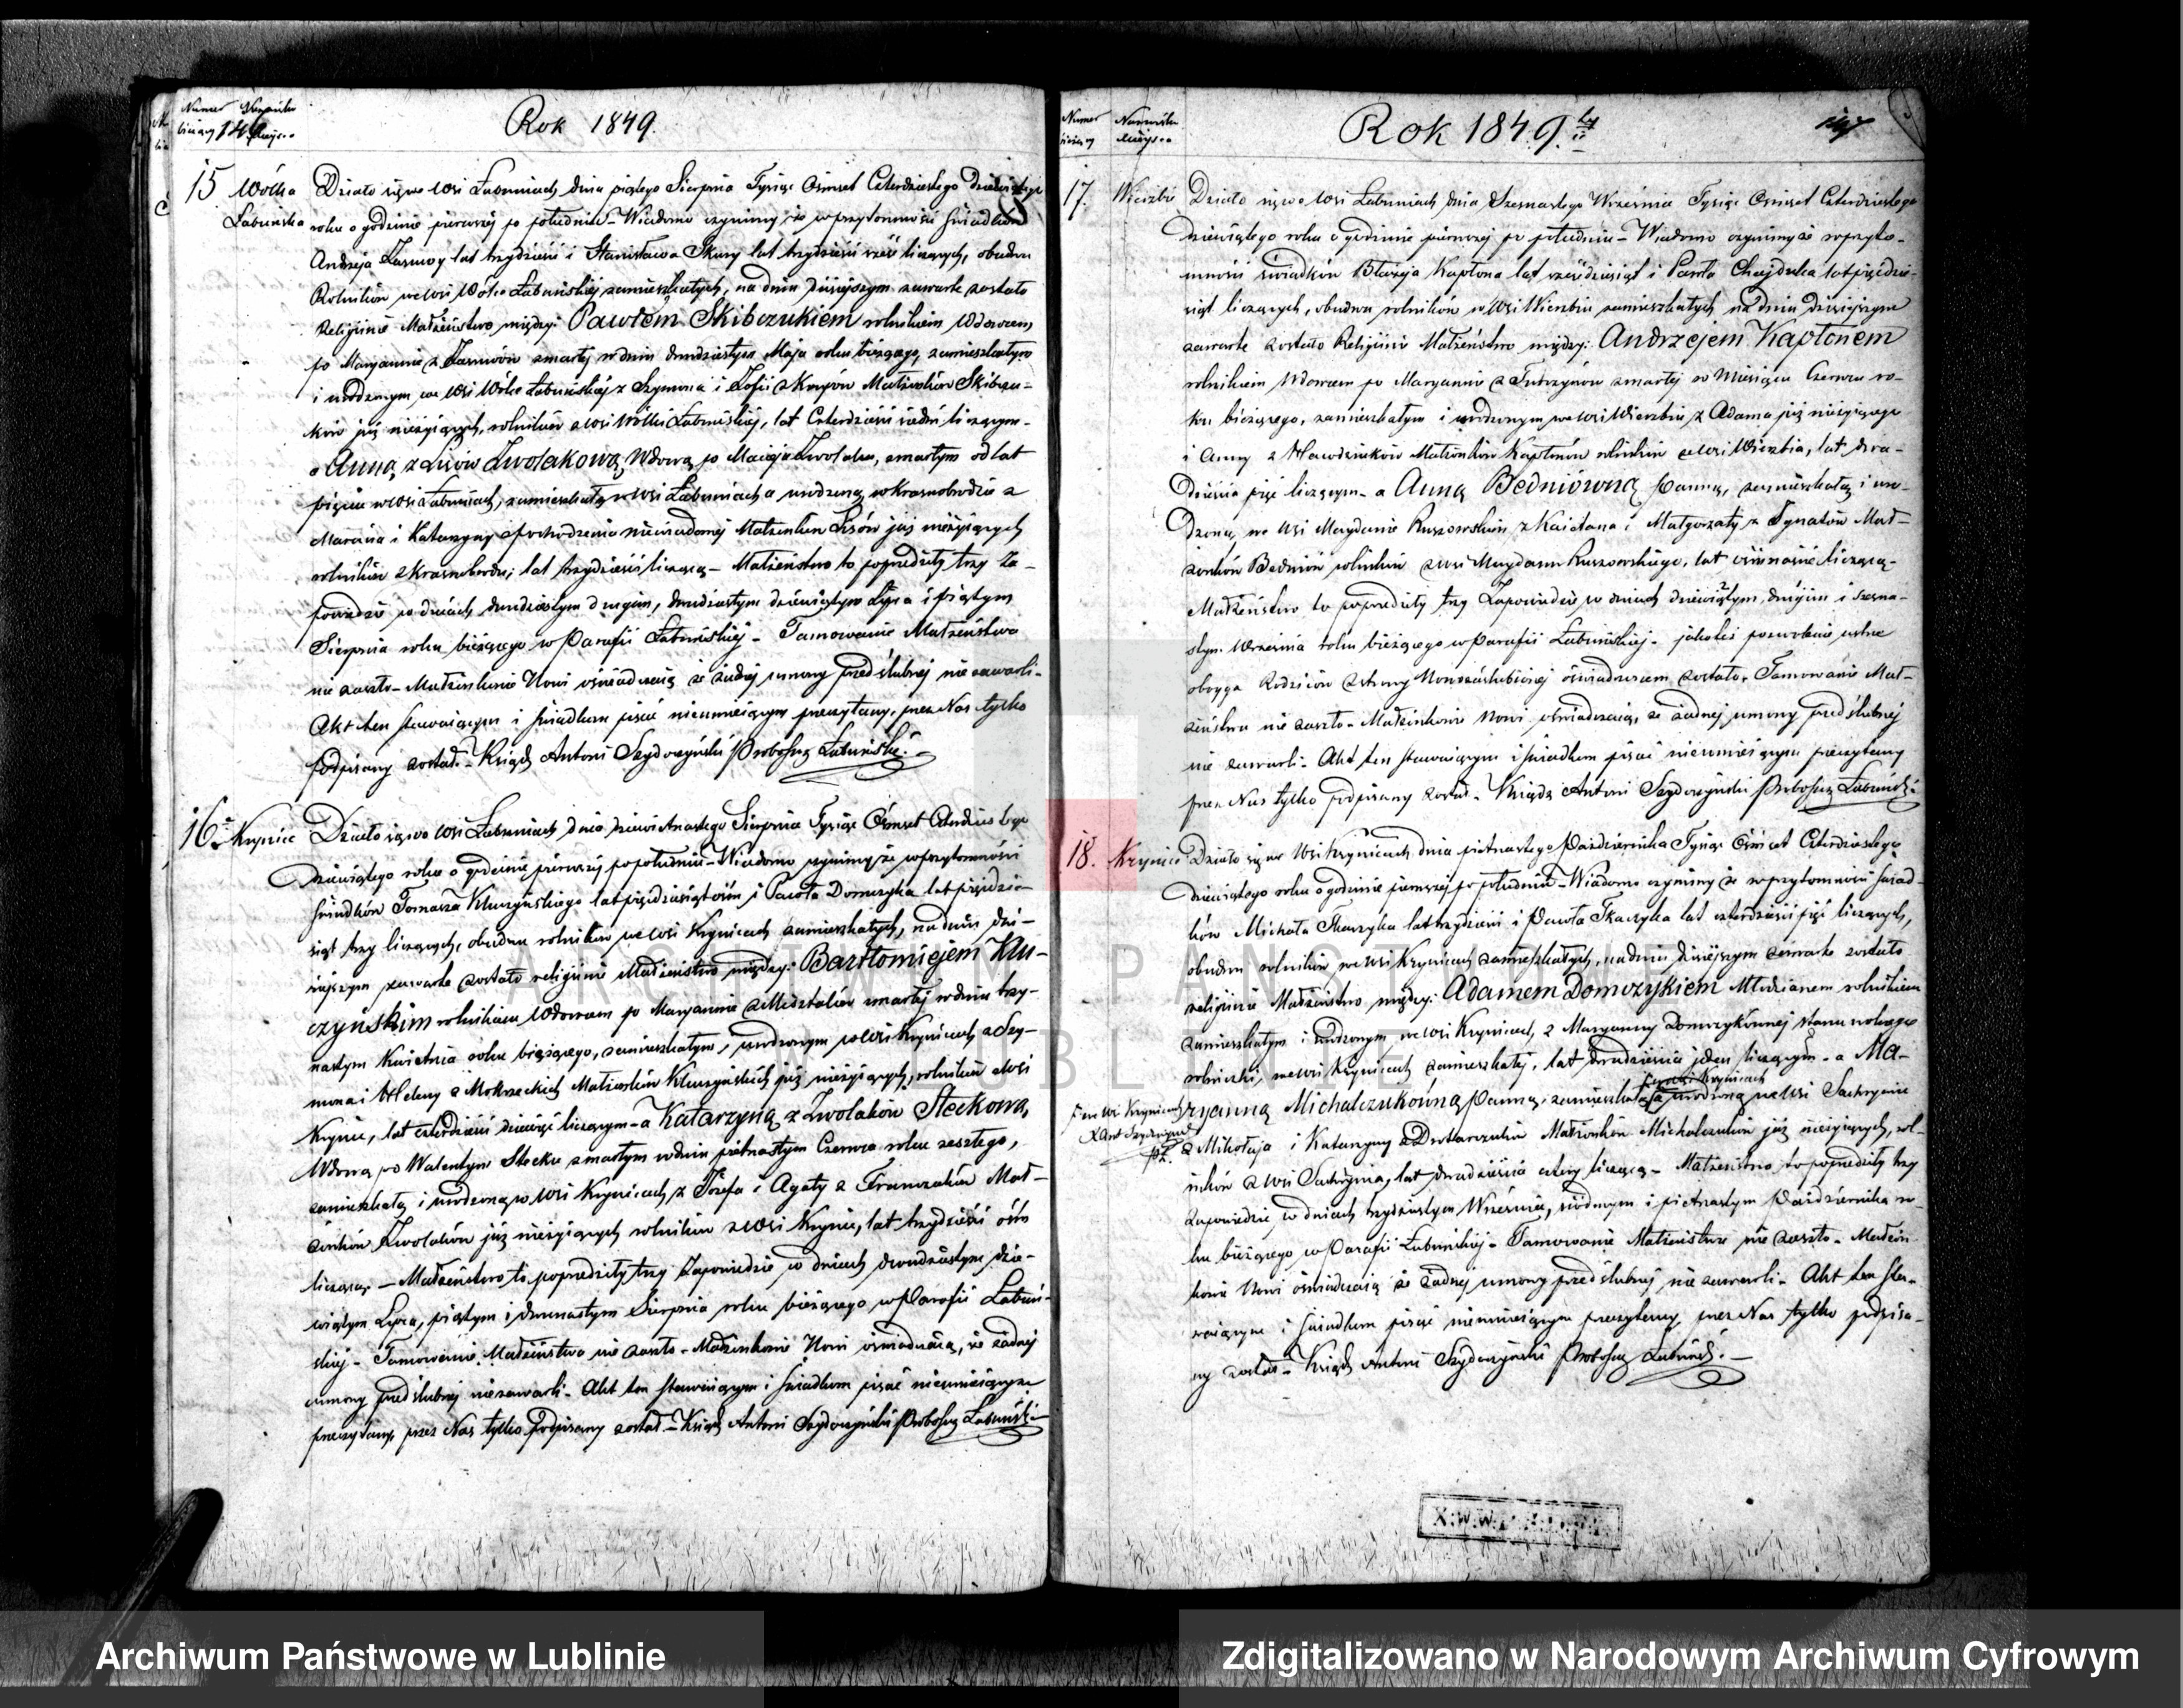 Numer bieżący
Nazwisko miejsc..
Rok 1849.
15
Wólka
Łabuńska
Działo się we Wsi Łabuniach dnia piątego Sierpnia Tysiąc Ośmset Czterdziestego Dziewiątego
roku o godzinie pierwszej po południu – Wiadomo czynimy że w przytomności świadków
Andrzeja lat trzydzieści i Stanisława Skury lat trzydzieści sześć liczących, obudwu
Rolników we wsi Wólce Łabuńskiej zamieszkałych, na dniu dzisiejszym zawarte zostało
Religijne Małżeństwo między: Pawłem Skibczukiem rolnikiem Wdowcem
po Maryannie z zmarłej w dniu dwudziestym Maja roku bieżącego, zamieszkałym
i urodzonym we wsi Wólce Łabuńskiej z Szymona i Zofii z Małżonków Skibczu-
ków już nieżyjących, rolników z wsi Wólki Łabuńskiej, lat Czterdzieści siedm liczącym-
a Anną z Lisów Zwolakową, Wdową po Macieju Zwolaku, zmarłym od lat
pięciu w wsi Łabuniach, zamieszkałą w wsi Łabuniach a urodzoną w Krasnobrodzie z
Marcina i Katarzyny z pochodzenia niewiadomej Małżonków Lisów już nieżyjących
rolników z Krasnobrodu; lat trzydzieści liczącą – Małżeństwo to poprzedziły trzy Za-
powiedzie w dniach dwudziestym drugim, dwudziestym dziewiątym Lipca i piątym
Sierpnia roku bieżącego w Parafii Łabuńskiej – Tamowanie Małżeństwa
nie zaszło – Małżonkowie Nowi oświadczają że żadnej umowy przedślubnej nie zawarli-
Akt ten stawającym i świadkom pisać nieumiejącym przeczytany, przez Nas tylko
podpisany został. – Ksiądz Antoni Szydoczyński Proboszcz Łabuński.
16.
Krynice
Działo się we wsi Łabuniach dnia dziewietnastego Sierpnia Tysiąc Ośmset Czterdziestego
Dziewiątego roku o godzinie pierwszej po południu – Wiadomo czynimy że w przytomności
świadków Tomasza Kluczyńskiego lat pięćdziesiąt ośm i Pawła Domczyka lat pięćdzie-
siąt trzy liczących, obudwu rolników we wsi Krynicach zamieszkałych, na dniu dzi-
siejszym zawarte zostało religijne Małżeństwo między: Bartłomiejem Klu-
czyńskim rolnikiem Wdowcem po Maryannie z zmarłej w dniu trzy-
nastym Kwietnia roku bieżącego, zamieszkałym i urodzonym we wsi Krynicach z Szy-
mona i Heleny z Mokrzeckich Małżonków Kluczyńskich już nieżyjących, rolników z wsi
Krynic, lat czterdzieści dziewięć liczącym – a Katarzyną z Zwolaków Steckową,
Wdową po Walentym Stecku zmarłym w dniu piętnastym Czerwca roku zeszłego,
zamieszkałą i urodzoną w wsi Krynicach, z Józefa i Agaty z Franczaków Mał-
żonków Zwolaków już nieżyjących rolników z wsi Krynic, lat trzydzieści ośm
liczącą – Małżeństwo to poprzedziły trzy Zapowiedzie w dniach dwudziestym dzie-
wiątym Lipca, piątym i dwunastym Sierpnia roku bieżącego w Parafii Łabuń-
skiej – Tamowanie Małżeństwa nie zaszło – Małżonkowie Nowi oświadczają, że żadnej
umowy przedślubnej nie zawarli – Akt ten stawającym i świadkom pisać nieumiejącym
przeczytany, przez Nas tylko podpisany został. – Ksiądz Antoni Szydoczyński Proboszcz Łabuński
Numer bieżący
Nazwisko miejsc..
Rok 1849.
17.
Wierzbie
Działo się we Wsi Łabuniach dnia Szesnastego Września Tysiąc Ośmset Czterdziestego
Dziewiątego roku o godzinie pierwszej po południu – Wiadomo czynimy że w przyto-
mności świadków Błażeja Kapłona lat sześćdziesiąt i Pawła Chajduka lat pięćdzie-
siąt liczących, obudwu rolników w Wsi Wierzbiu zamieszkałych na dniu dzisiejszym
zawarte zostało Religijne Małżeństwo między: Andrzejem Kapłonem
rolnikiem Wdowcem po Maryannie z zmarłej w Miesiącu Czerwcu ro-
ku bieżącego, zamieszkałym i urodzonym we wsi Wierzbiu z Adama już nieżyjącego
i Anny z Małżonków Kapłonów rolników z wsi Wierzbia, lat dwa-
dzieścia pięć liczącym – a Anną Bedniówną Panną, zamieszkałą i uro-
dzoną we wsi Maydanie Ruszowskim z Kaietana i Małgorzaty z Ignatów Mał-
żonków Bedniów rolników z wsi Maydanu Ruszowskiego, lat ośmnaście liczącą-
Małżeństwo to poprzedziły trzy Zapowiedzie w dniach dziewiątym, drugim i szesna-
stym Września roku bieżącego w Parafii Łabuńskiej – jakoteż pozwolenie ustne
oboyga Rodziców z strony Nowozaślubionej oświadczonem zostało. Tamowanie Mał-
żeństwa nie zaszło – Małżonkowie Nowi oświadczają, że żadnej umowy przedślubnej
nie zawarli – Akt ten stawającym i świadkom pisać nieumiejącym przeczytany
przez Nas tylko podpisany został – Ksiądz Antoni Szydoczyński Proboszcz Łabuński
18.
Krynice
Działo się we Wsi Krynicach dnia piętnastego Października Tysiąc Ośmset Czterdziestego
Dziewiątego roku o godzinie pierwszej po południu – Wiadomo czynimy że w przytomności świad-
ków Michała Tkaczyka lat trzydzieści i Pawła Tkaczyka lat czterdzieści pięć liczących,
obudwu rolników we wsi Krynicach zamieszkałych, na dniu dzisiejszym zawarte zostało
religijne Małżeństwo między: Adamem Domczykiem Młodzianem rolnikiem
zamieszkałym i urodzonym we wsi Krynicach, z Maryanny Domczykównej stanu wolnego
rolniczki, we wsi Krynicach zamieszkałej, lat dwadzieścia jeden liczącym – a Ma-
ryanną Michalczukówną Panną, zamieszkałą a urodzoną we wsi Suchryniu
we wsi Krynicach
z Mikołaja i Katarzyny z Małżonków Michalczuków już nieżyjących, rol-
ników z wsi, lat dwadzieścia cztery liczącą – Małżeństwo to poprzedziły trzy
Zapowiedzie w dniach trzydziestym Września, siódmym i piętnastym Października ro-
ku bieżącego w Parafii Łabuńskiej – Tamowanie Małżeństwa nie zaszło – Małżon-
kowie Nowi oświadczają że żadnej umowy przedślubnej nie zawarli – Akt ten sta-
wającym i świadkom pisać nieumiejącym przeczytany, przez Nas tylko podpisa-
ny został – Ksiądz Antoni Szydoczyński Proboszcz Łabuński. –
ARCHIWUM PAŃSTWOWE
W LUBLINIE
Archiwum Państwowe w Lublinie
Zdigitalizowano w Narodowym Archiwum Cyfrowym